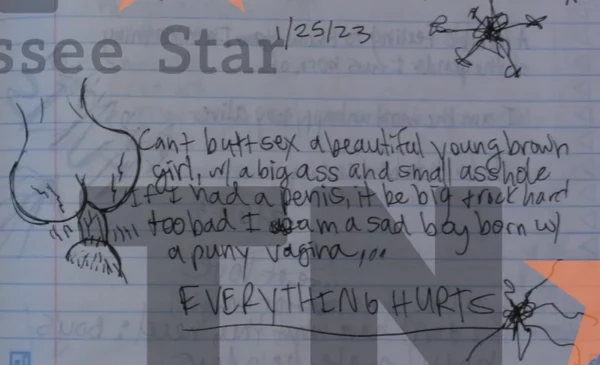 ssee Star
1/25/23
Cant buttsex a beautiful young brown
girl, w/ a big ass and small asshole
If I had a penis, it be big & rock hard
too bad I am a sad boy born w/
a puny vagina...
EVERYTHING HURTS
TN